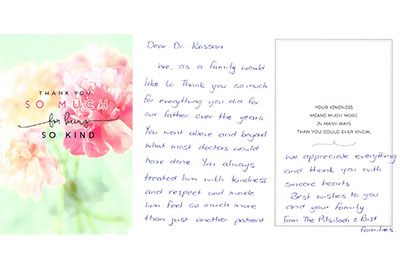 THANK YOU
SO MUCH
for being
SO KIND
Dear Dr. Kassam
We, as a family would
like to Thank you so much
for everything you did for
our father over the years.
You went above and beyond
what most doctors would
have done. You always
treated him with kindness
and respect and made
him feel so much more
than just another patient
YOUR KINDNESS
MEANS MUCH MORE
IN MANY WAYS
THAN YOU COULD EVER KNOW.
We appreciate everything
and thank you with
sincere hearts.
Best wishes to you
and your family.
From The & Rust
families.